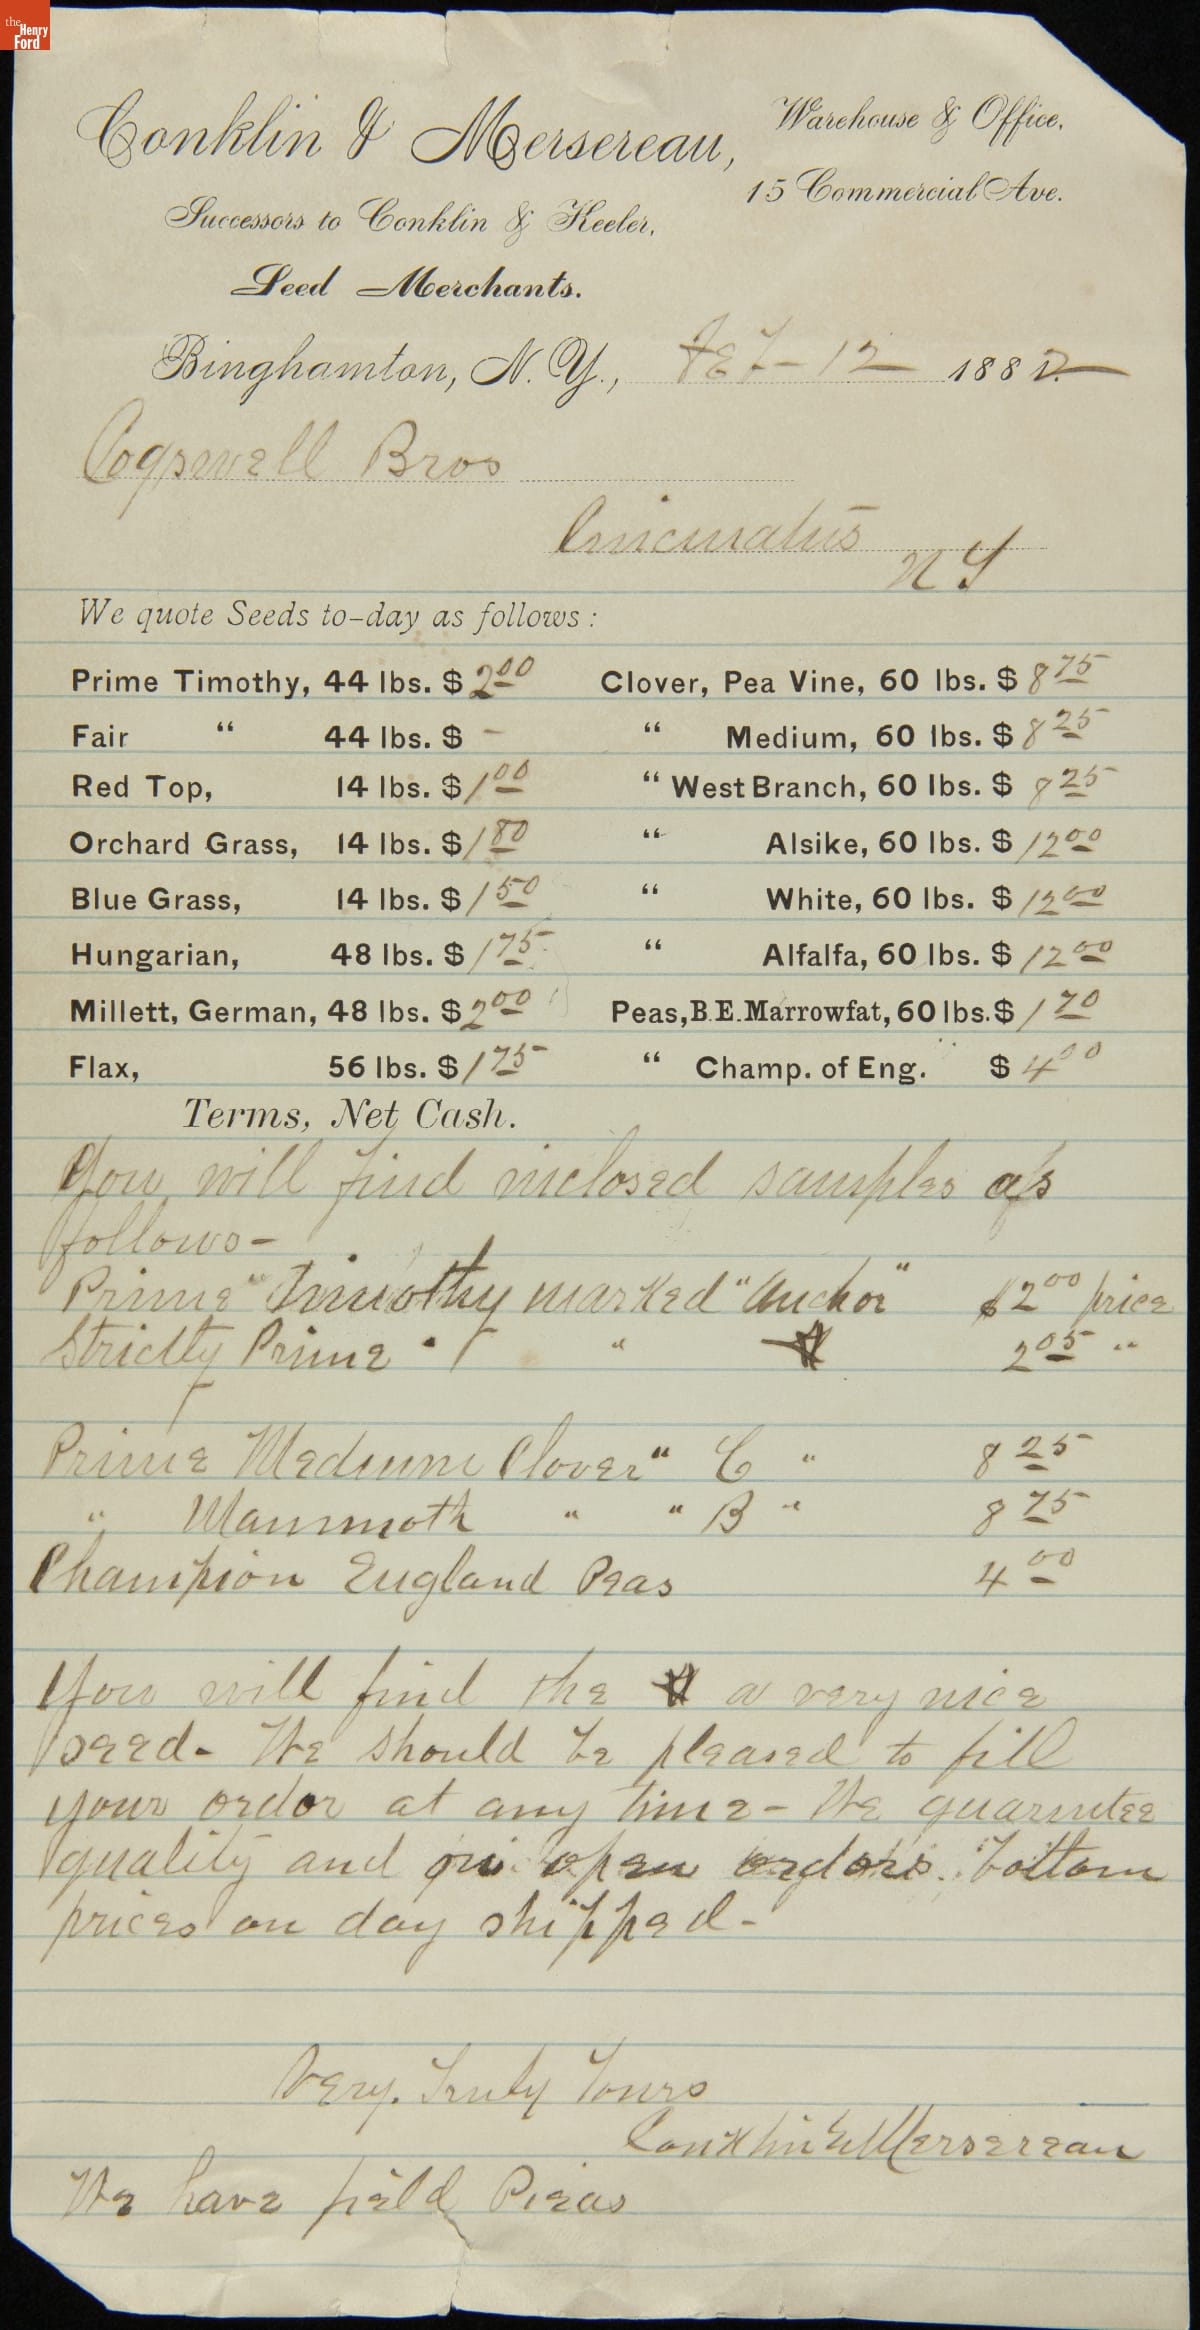 the Henry Ford
Conklin & Mersereau,
Warehouse & Office,
15 Commercial Ave.
Successors to Conklin & Keeler,
Seed Merchants.
Binghamton, N. Y., Feb - 12 1882
Cogswell Bros
Cincinatus
N Y
We quote Seeds to-day as follows:
Prime Timothy, 44 lbs. $ 2.00 Clover, Pea Vine, 60 lbs. $ 8 75
Fair " 44 lbs. $ - " Medium, 60 lbs. $ 8 25
Red Top, 14 lbs. $ 1 00 " West Branch, 60 lbs. $ 8 25
Orchard Grass, 14 lbs. $ 1 80 " Alsike, 60 lbs. $ 12 00
Blue Grass, 14 lbs. $ 1 50 " White, 60 lbs. $ 12 00
Hungarian, 48 lbs. $ 1 75 " Alfalfa, 60 lbs. $ 12 00
Millett, German, 48 lbs. $ 2 00 Peas, B.E. Marrowfat, 60 lbs. $ 1 70
Flax, 56 lbs. $ 1 75 " Champ. of Eng. $ 4 00
Terms, Net Cash.
You will find inclosed samples as
follows -
Prime " Timothy marked "Anchor" $2 00 price
Strictly Prime " " ☆ 2 05 "
Prime Medium Clover " C " 8 25
" Mammoth " " B " 8 75
Champion England Peas 4 00
You will find the ☆ a very nice
seed - We should be pleased to fill
your order at any time - We guarantee
quality and on open orders bottom
prices on day shipped -
Very Truly Yours
Conklin & Mersereau
We have field Pieas